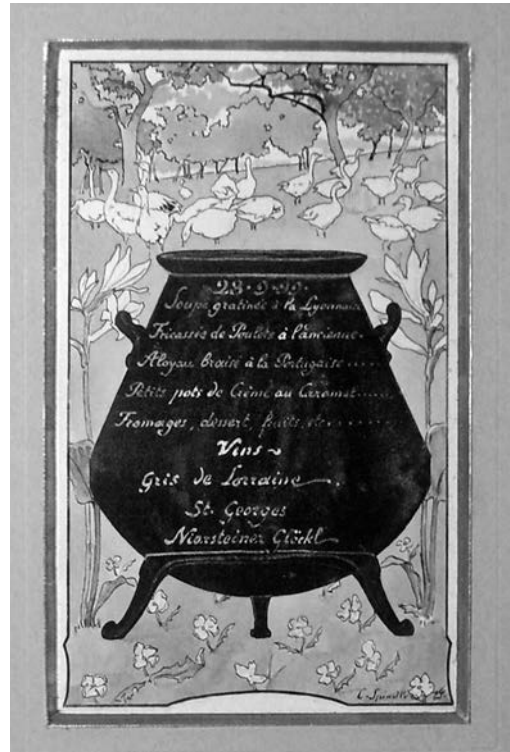 28·9·19·
Soupe gratinée à la Lyonnaise
Fricassée de Poulets à l'ancienne.
Aloyau braisé à la Portugaise.....
Petits pots de Crème au Caramel.....
Fromages, dessert, fruits, etc.......
Vins~
Gris de Lorraine.
St. Georges
Niersteiner Glöckl
C. Spindler